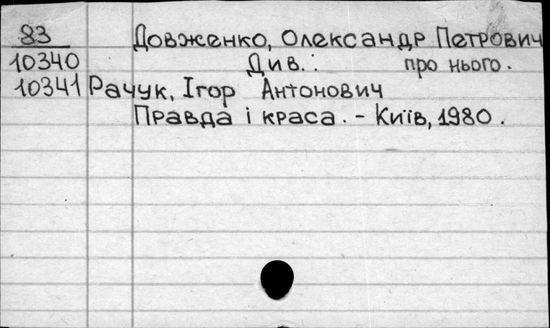 83 Довженко, Олександр Петрович
10340 Див.: про нього.
10341 Рачук, Ігор Антонович
Правда і краса. – Київ, 1980.